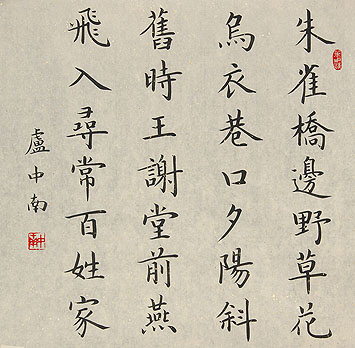 朱雀橋邊野草花
烏衣巷口夕陽斜
舊時王謝堂前燕
飛入尋常百姓家
盧中南